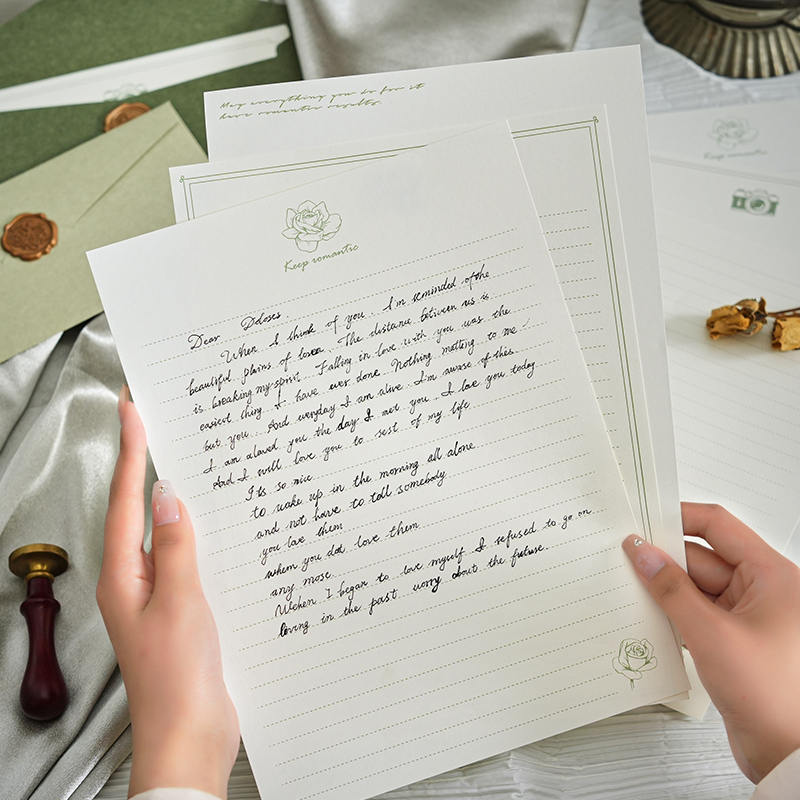 May everything you do for it
have romantic results.
Keep romantic
Keep romantic
Dear Doloses
When I think of you I'm reminded of the
beautiful plains of The distance between us is
is breaking my spirit. Falling in love with you was the
easiest thing I have ever done. Nothing matting to me
but you. And everyday I am alive. I'm aware of this.
I am you the day I met you. I love you today.
And I will love you to rest of my life.
It's so nice
to wake up in the morning all alone
and not have to tell somebody
you love them
when you love them
any more.
When I began to love myself I refused to go on
in the past worry about the future.